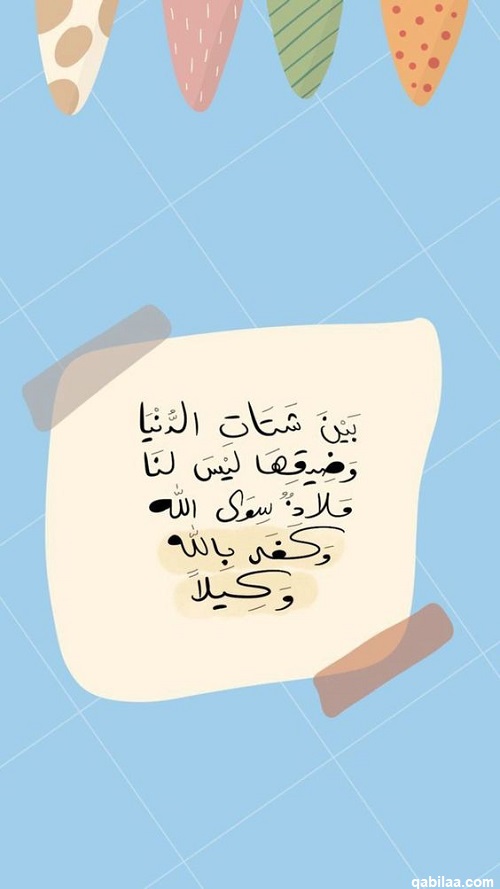 بَيْنَ شَتَات الدُّنْيَا
وَضِيقِهَا لَيْسَ لنَا
مَلاذٌ سِوَى اللّٰه
وَكَفَى بِاللّٰه
وَكِيلاً
qabilaa.com